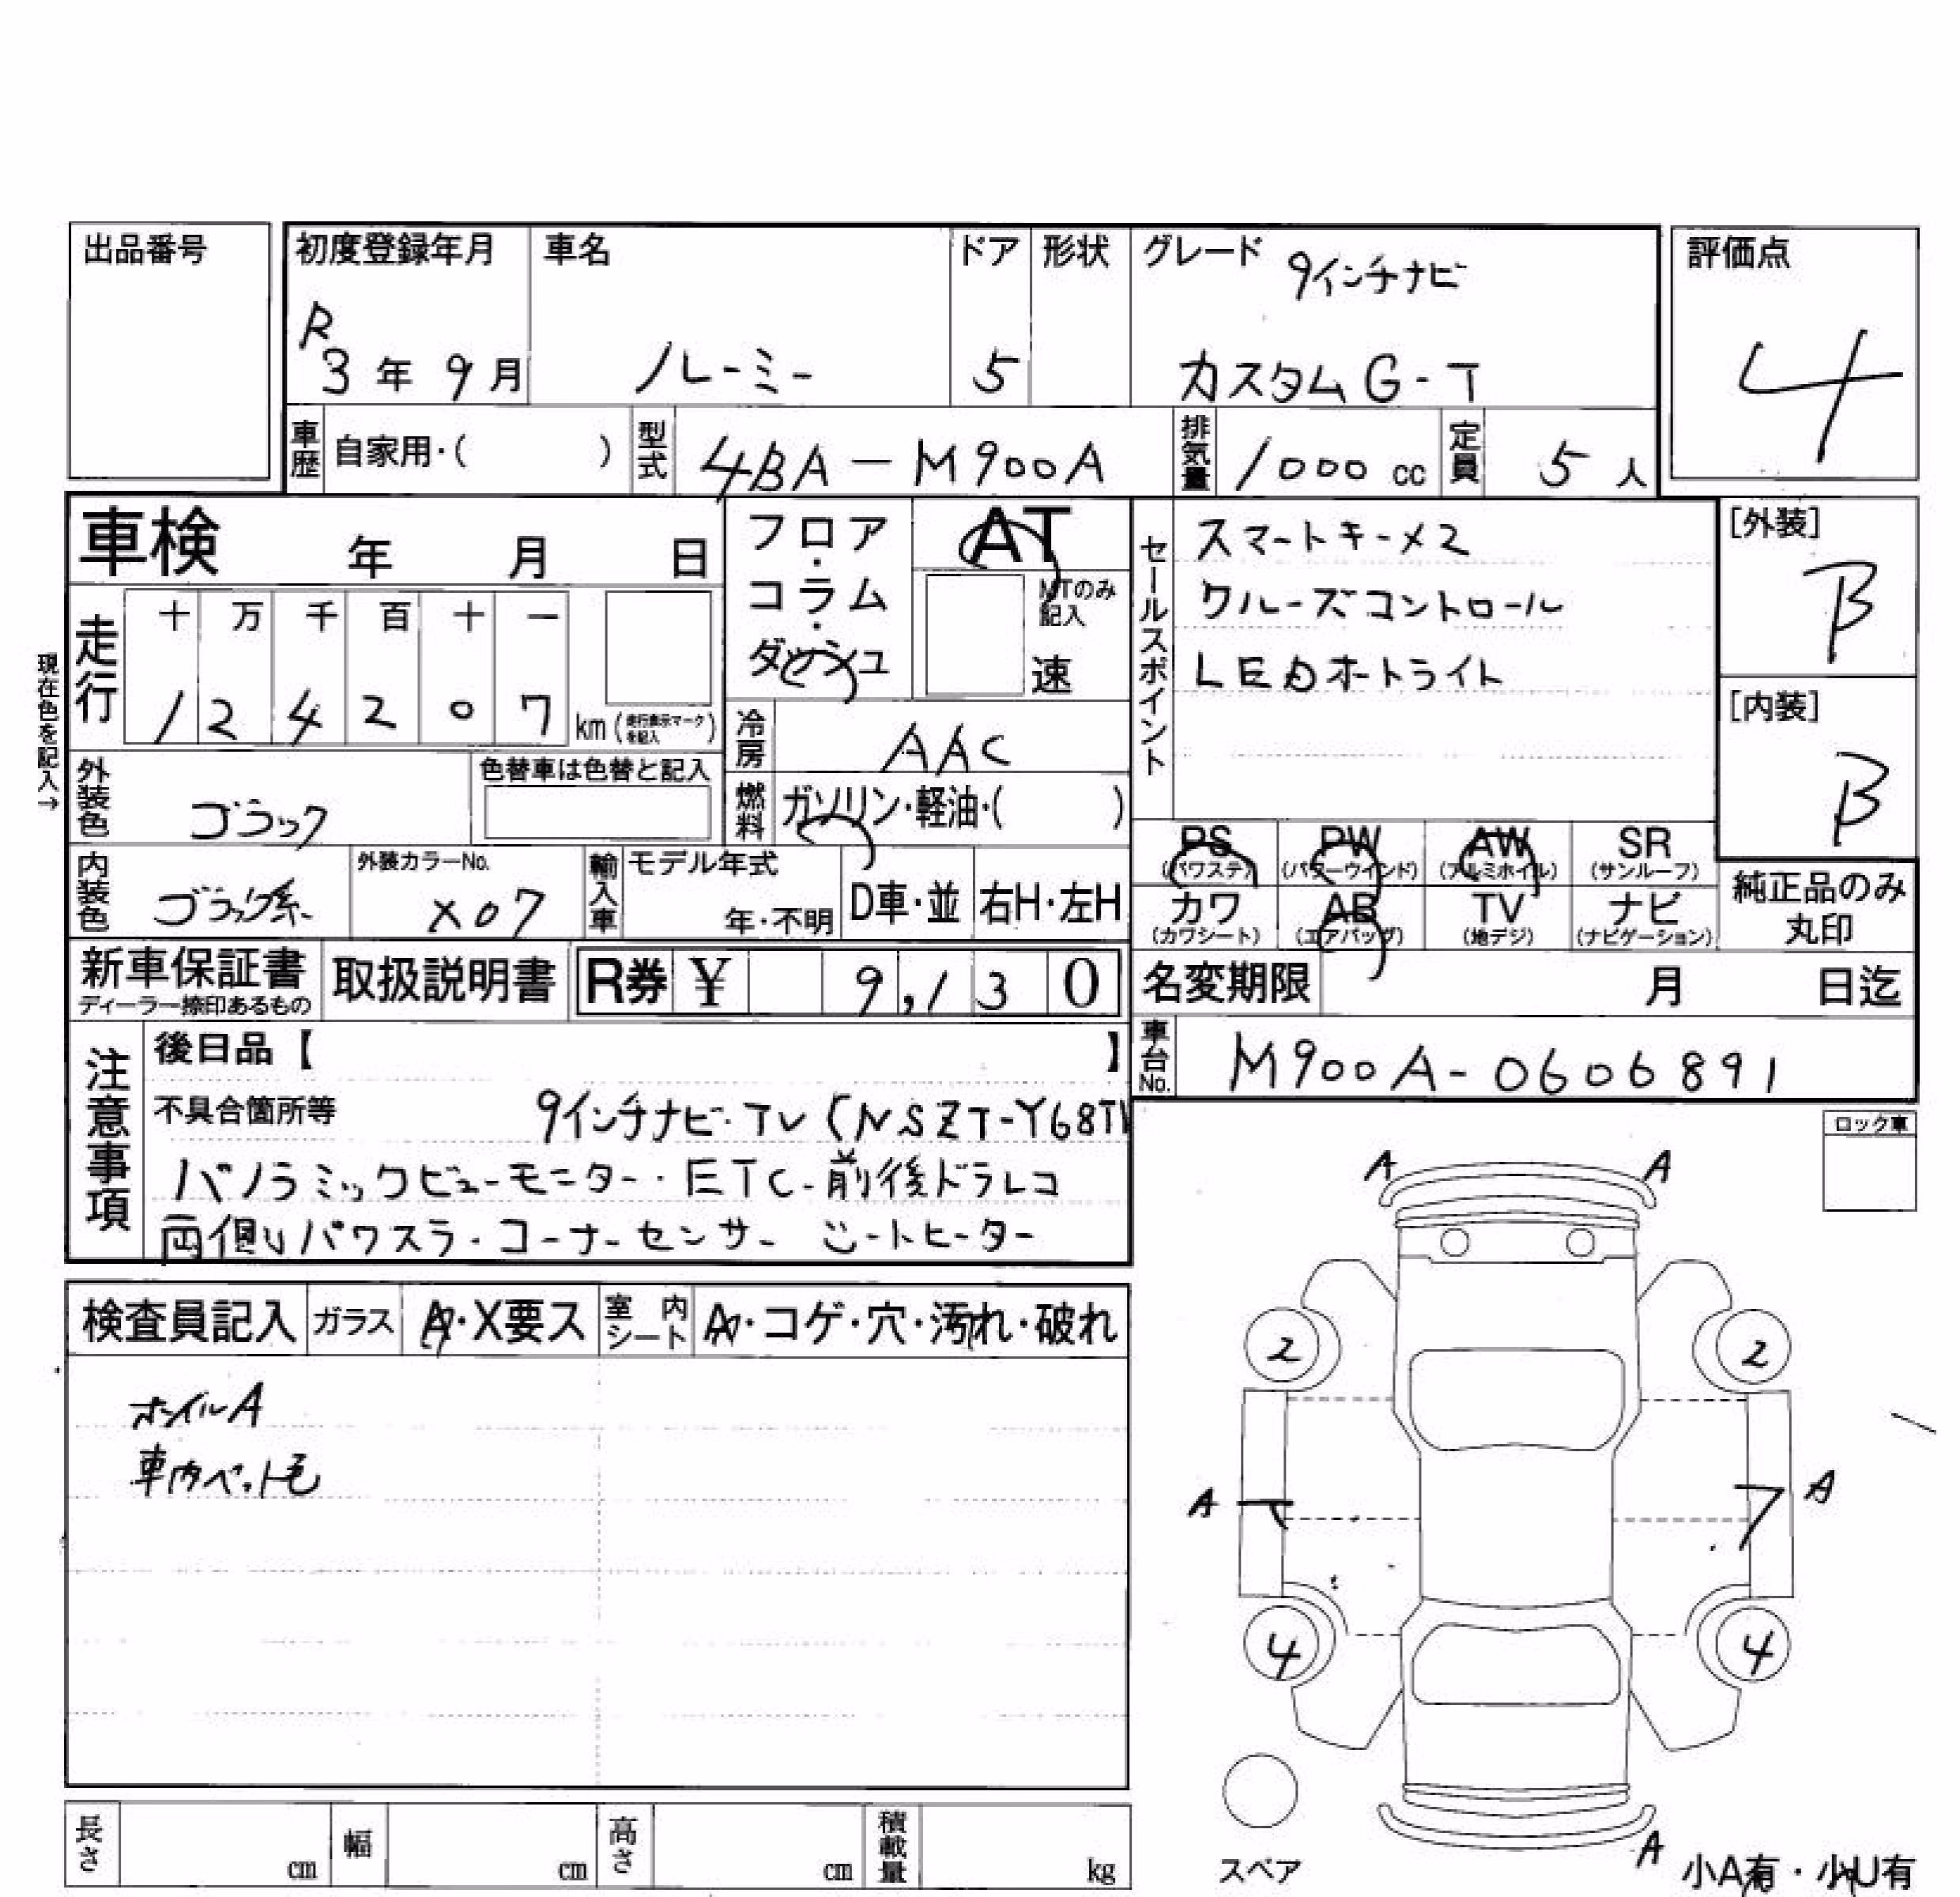 出品番号
初度登録年月 車名 ドア 形状 グレード 9インチナビ 評価点
R3年9月 ルーミー 5 カスタムG-T 4
車歴 自家用・( ) 型式 4BA-M900A 排気量 1000cc 定員 5人
車検 年 月 日
フロア・コラム・ダッシュ
AT
MTのみ記入
速
セールスポイント
スマートキー×2
クルーズコントロール
LEDオートライト
[外装]
B
[内装]
B
現在色を記入→
走行 十 万 千 百 十 一
1 2 4 2 0 7 km(走行表示マークを記入)
冷房 AAC
外装色 ブラック 色替車は色替と記入
燃料 ガソリン・軽油・( )
内装色 ブラック系 外装カラーNo. X07 輸入車 モデル年式 年・不明 D車・並 右H・左H
PS (パワステ) PW (パワーウインド) AW (アルミホイル) SR (サンルーフ)
カワ (カワシート) AB (エアバッグ) TV (地デジ) ナビ (ナビゲーション)
純正品のみ丸印
新車保証書 ディーラー捺印あるもの 取扱説明書 R券 ¥ 9,130
名変期限 月 日迄
車台No. M900A-0606891
注意事項
後日品【 】
不具合箇所等 9インチナビ・TV(NSZT-Y68T
パノラミックビューモニター・ETC・前後ドラレコ
両側パワスラ・コーナーセンサー シートヒーター
ロック車
検査員記入 ガラス A・X要ス 室内シート A・コゲ・穴・汚れ・破れ
ホイルA
車内ペット毛
A A
2 2
A A
4 4
スペア
A
小A有・小U有
長さ cm 幅 cm 高さ cm 積載量 kg